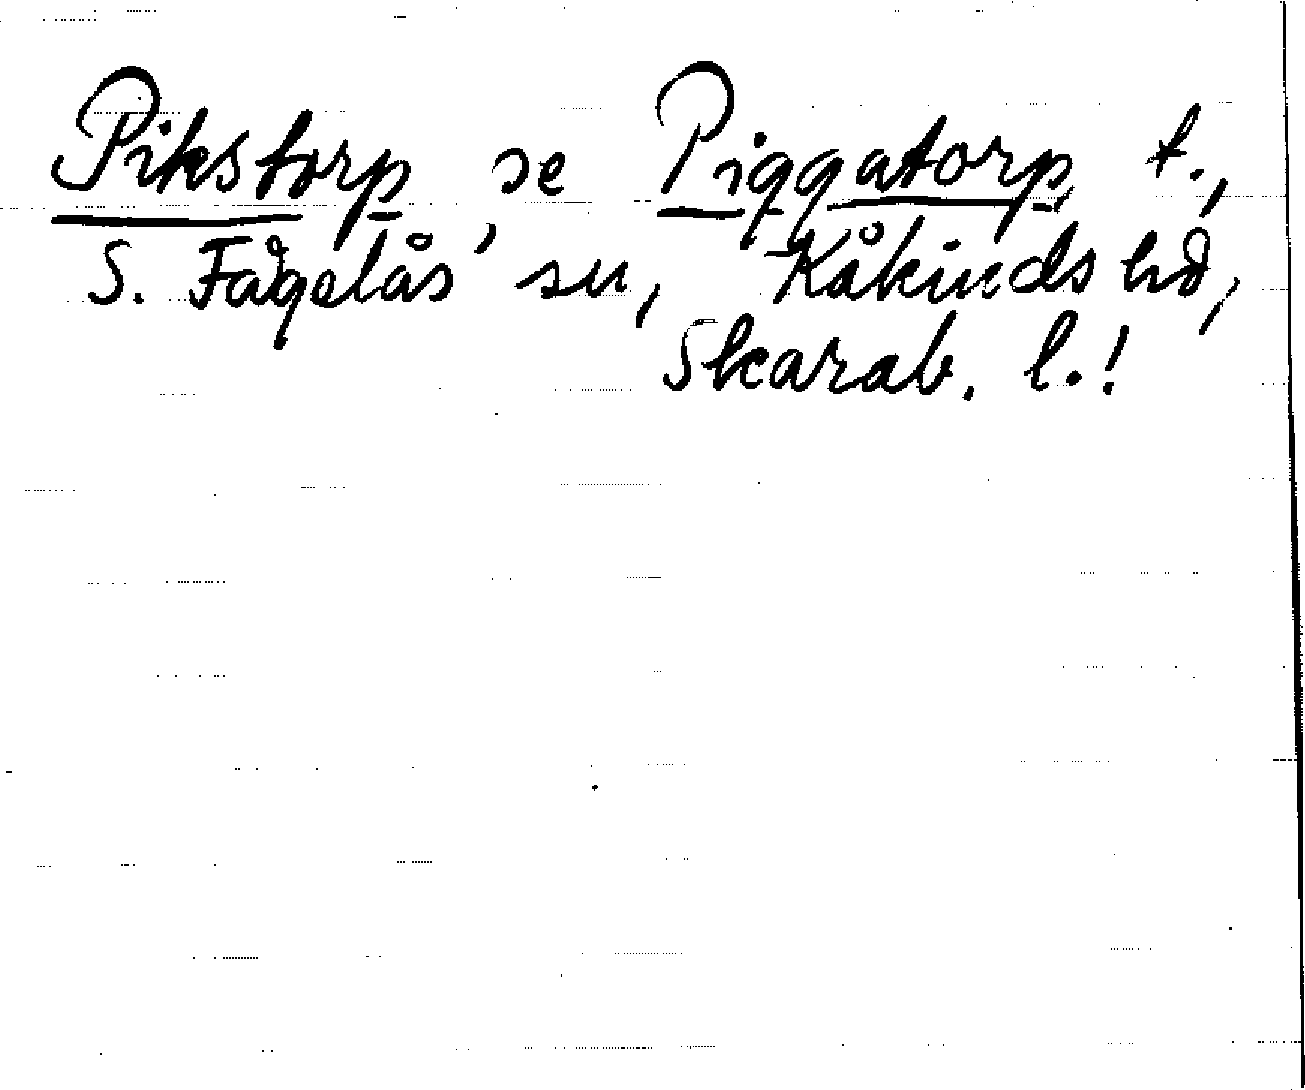 Pikstorp, se Piggatorp t.,
S. Fågelås sn, Kåkinds hd,
Skarab. l.!